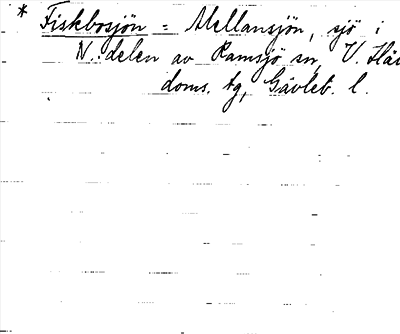 * Fiskbosjön = Mellansjön, sjö i
N. delen av Ramsjö sn, V. Häl
doms. tg, Gävleb. l.